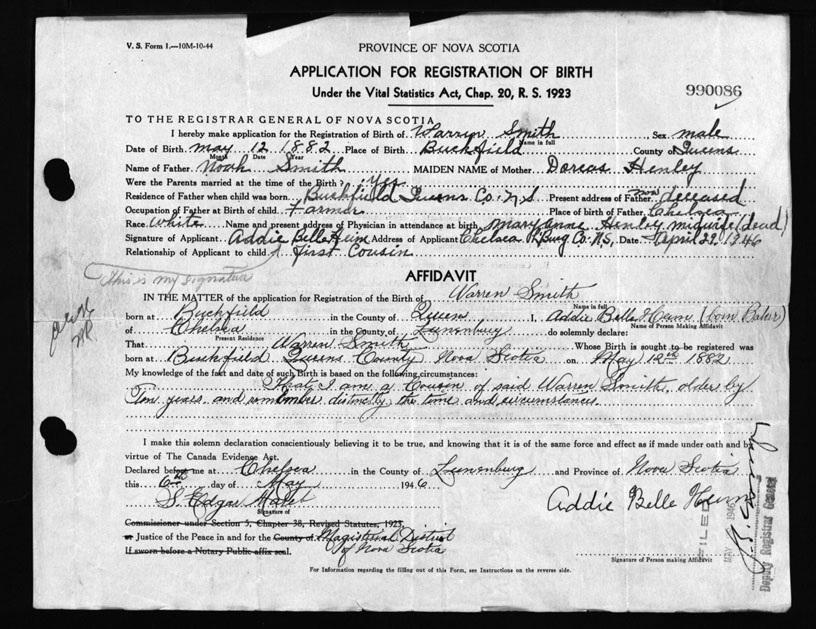 V. S. Form 1.—10M-10-44
PROVINCE OF NOVA SCOTIA
APPLICATION FOR REGISTRATION OF BIRTH
Under the Vital Statistics Act, Chap. 20, R. S. 1923
990086
TO THE REGISTRAR GENERAL OF NOVA SCOTIA
I hereby make application for the Registration of Birth of Warren Smith Sex male
Name in full
Date of Birth may 12 1882 Place of Birth Buckfield County of Queens
Month Date Year
Name of Father Noah Smith MAIDEN NAME of Mother Dorcas Henley
Were the Parents married at the time of the Birth? Yes
Residence of Father when child was born Buckfield Queens Co. N S Present address of Father now deceased
Occupation of Father at Birth of child Farmer Place of birth of Father Chelsea
Race White Name and present address of Physician in attendance at birth Mary Anne Henley midwife (dead)
Signature of Applicant Addie Belle Address of Applicant Chelsea Co. N.S. Date April 29, 1946
Relationship of Applicant to child First Cousin
This is my signature
AFFIDAVIT
IN THE MATTER of the application for Registration of the Birth of Warren Smith
Name in full
born at Buckfield in the County of Queen I, Addie Belle (born Baker)
Name of Person Making Affidavit
of Chelsea in the County of Lunenburg do solemnly declare:
Present Residence
That Warren Smith Whose Birth is sought to be registered was
born at Buckfield Queens County Nova Scotia on May 12th 1882
My knowledge of the fact and date of such Birth is based on the following circumstances:
That I am a Cousin of said Warren Smith, older by
Ten years, and remember distinctly the time and circumstances.
I make this solemn declaration conscientiously believing it to be true, and knowing that it is of the same force and effect as if made under oath and by
virtue of The Canada Evidence Act.
Declared before me at Chelsea in the County of Lunenburg and Province of Nova Scotia
this 6th day of May 1946
S. Edgar
Signature of
Addie Belle
Commissioner under Section 5, Chapter 38, Revised Statutes, 1923,
or Justice of the Peace in and for the County of Magisterial District
of Nova Scotia
If sworn before a Notary Public affix seal.
Signature of Person making Affidavit
For Information regarding the filling out of this Form, see Instructions on the reverse side.
FILED
MAY 1946
Deputy Registrar General